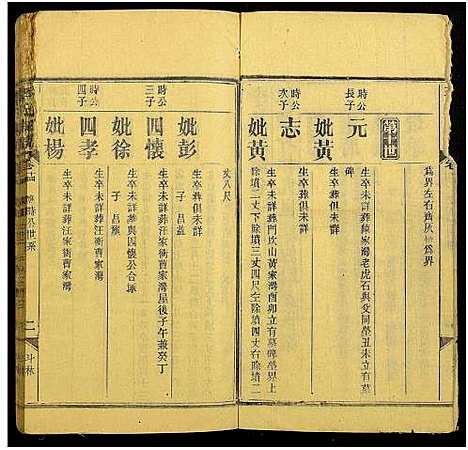 為界左右齊灰 為界
時公長子
元
生卒未詳葬陳家灣老虎石與父同塋丑未立有墓
碑
妣黃
生卒葬俱未詳
時公次子
志
生卒葬俱未詳
妣黃
生卒未詳葬門坎山黃家灣酉卯立有墓碑塋界上
除墳三丈下除墳三丈四尺左除墳四丈右除墳二
丈八尺
妣彭
子 昌
時公三子
四懷
生卒未詳葬汪家衝曹家灣屋後子午兼癸丁
妣徐
生卒未詳葬與四懷公合塚
子 昌
時公四子
四孝
生卒未詳葬汪家衝曹家灣
妣楊
生卒未詳葬汪家衝曹家灣
時公世系
二